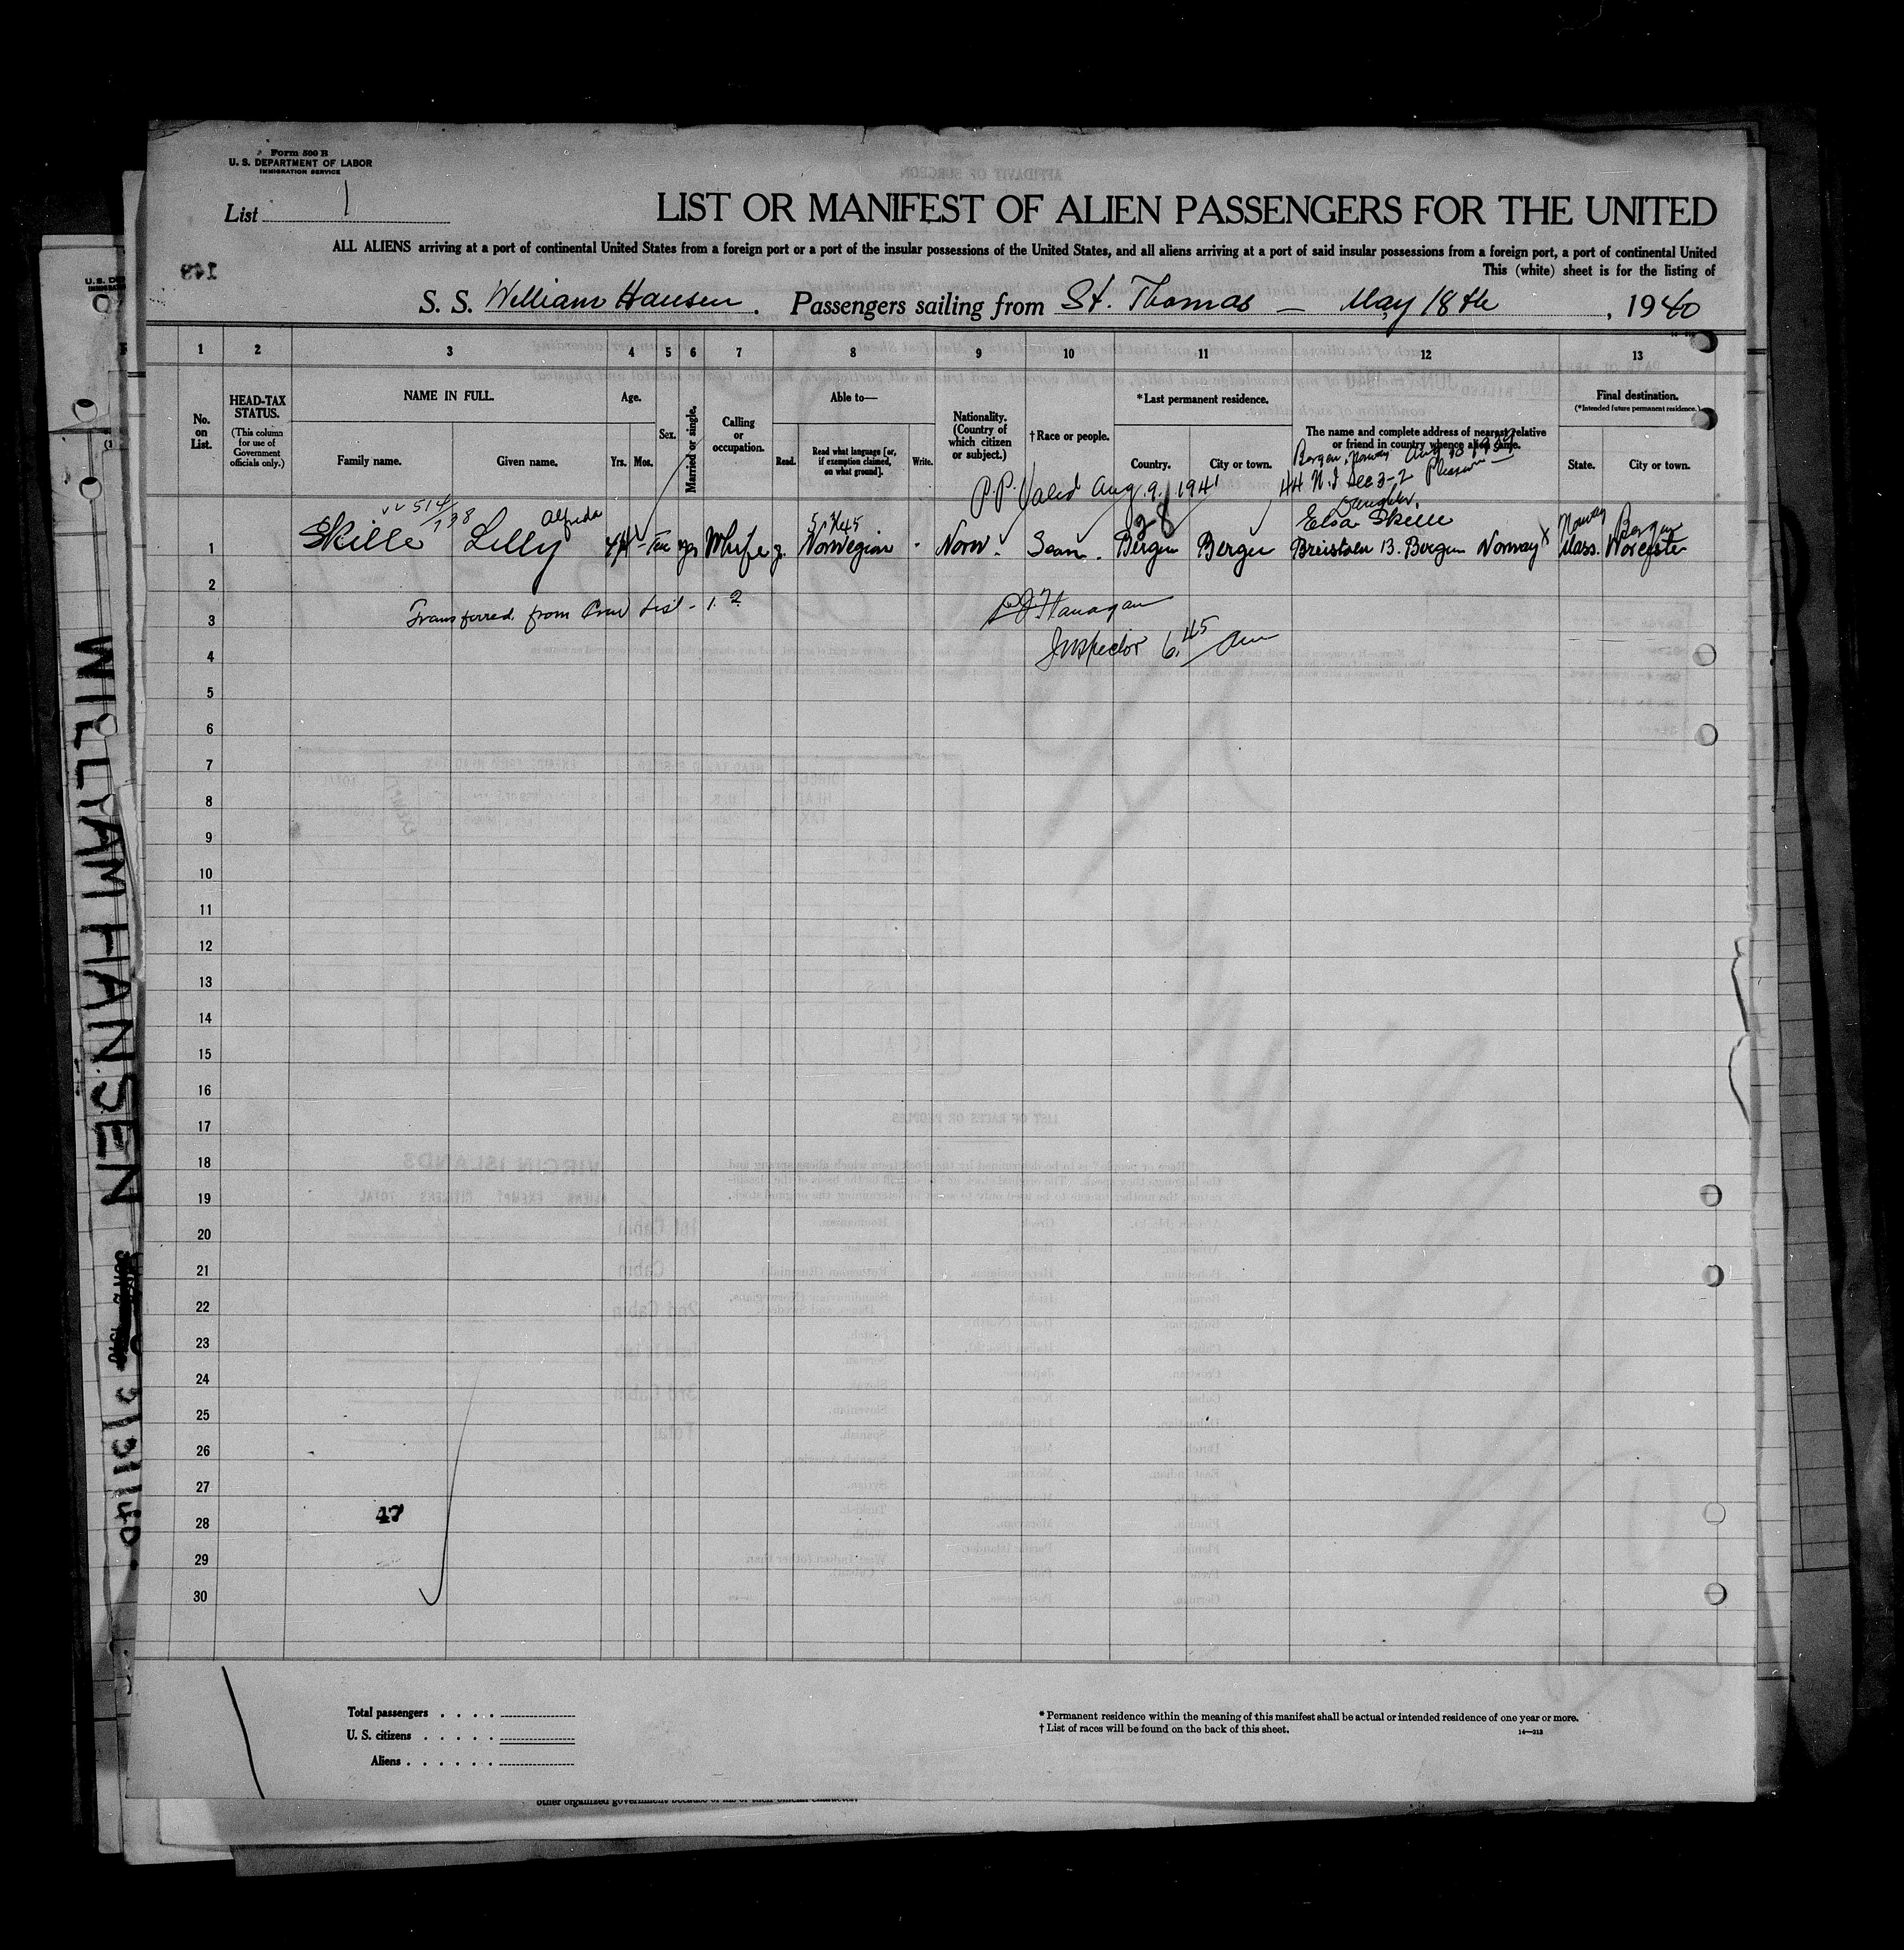 Form 500 B
U. S. DEPARTMENT OF LABOR
IMMIGRATION SERVICE
List 1
LIST OR MANIFEST OF ALIEN PASSENGERS FOR THE UNITED
ALL ALIENS arriving at a port of continental United States from a foreign port or a port of the insular possessions of the United States, and all aliens arriving at a port of said insular possessions from a foreign port, a port of continental United
This (white) sheet is for the listing of
S. S. William Hansen. Passengers sailing from St. Thomas — May 18th, 1940
1 2 3 4 5 6 7 8 9 10 11 12 13
No. on List.
HEAD-TAX STATUS.
(This column for use of Government officials only.)
NAME IN FULL.
Family name.
Given name.
Age.
Yrs. Mos.
Sex.
Married or single.
Calling or occupation.
Able to—
Read.
Read what language [or, if exemption claimed, on what ground].
Write.
Nationality. (Country of which citizen or subject.)
†Race or people.
*Last permanent residence.
Country.
City or town.
The name and complete address of nearest relative or friend in country whence alien came.
Final destination.
(*Intended future permanent residence.)
State.
City or town.
Bergen, Norway Aug 10 1939
P.P. Valid Aug. 9. 1941
44 N.I Sec 3-2 Pleasure
514/138
Alfreda
Daughter.
28
Elsa Skille
Norway Bergen
1 Skille Lilly Norwegian Norw. Scan. Bergen Bergen 13. Bergen Norway Mass. Worcester
2
3 Transferred from Crew List - 1.
Flanagan
4 Inspector 6.45 am
5
6
7
8
9
10
11
12
13
14
15
16
17
18
19
20
21
22
23
24
25
26
27
28
29
30
47
Total passengers
U. S. citizens
Aliens
* Permanent residence within the meaning of this manifest shall be actual or intended residence of one year or more.
† List of races will be found on the back of this sheet.
14—313
other organized government because of his or their official character.
WILLIAM HANSEN
5/31/40.